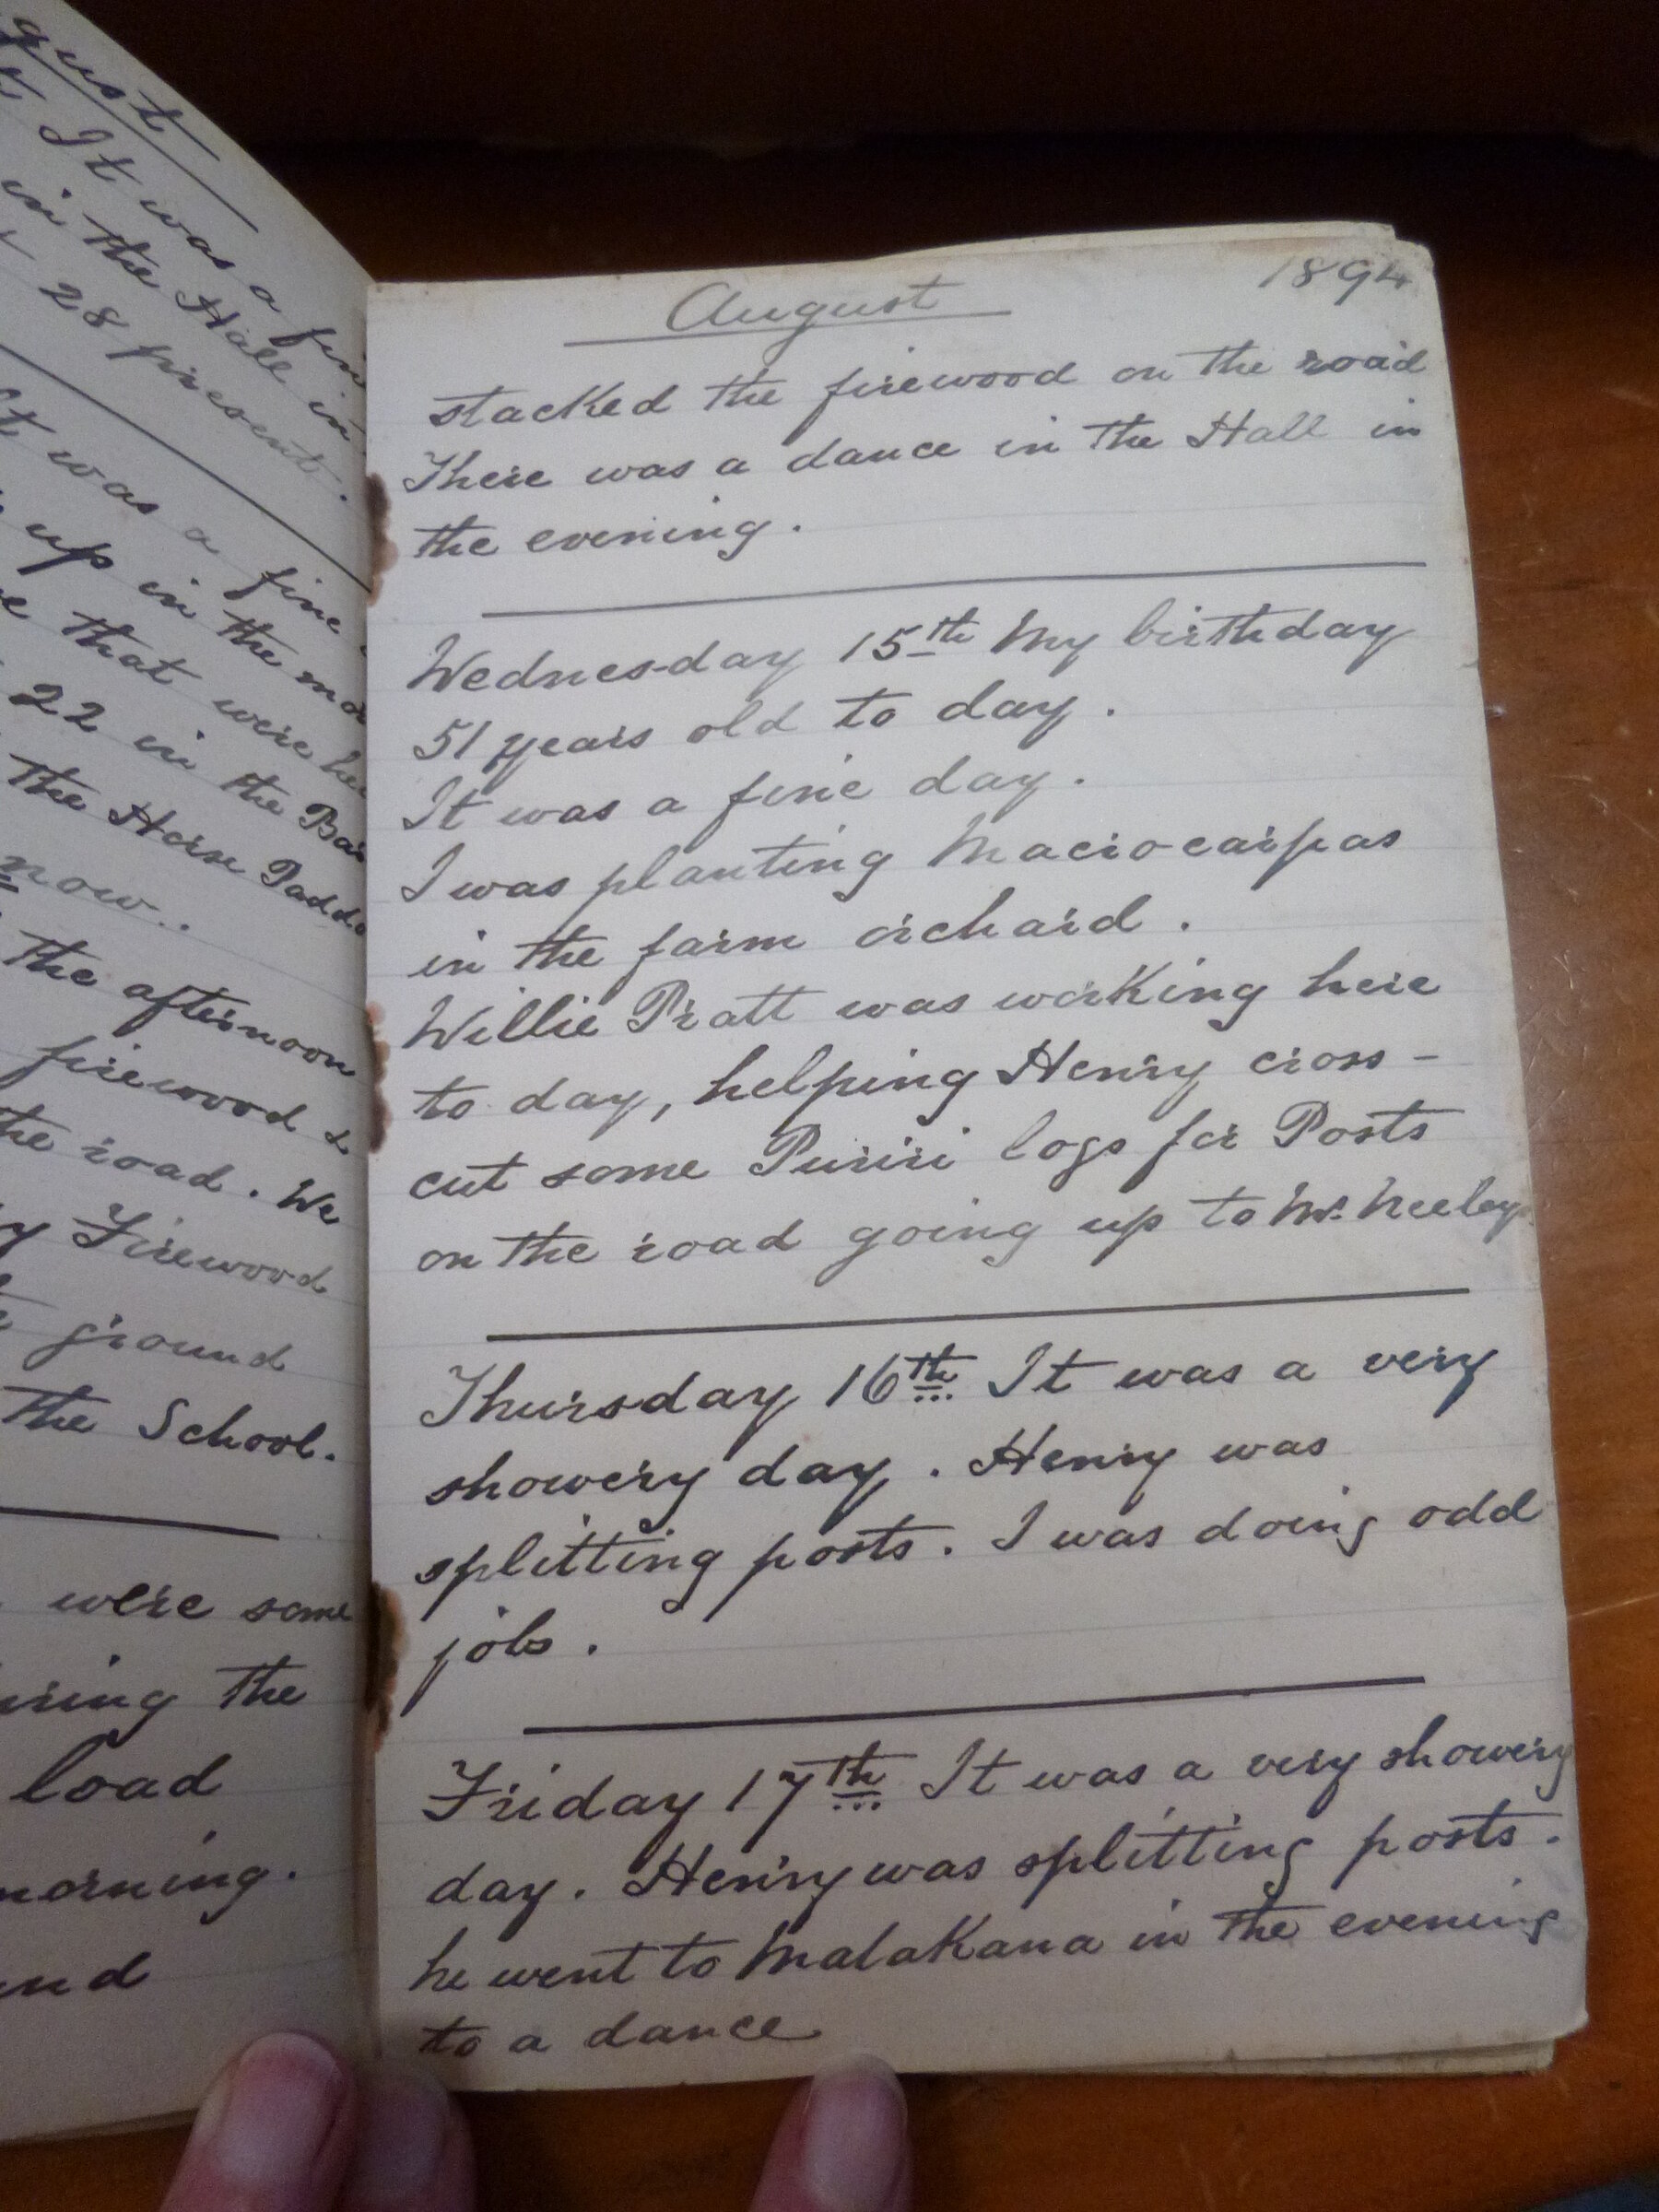 gust
It was a fin
in the Hall in
28 present.
It was a fine
up in the mo
that were he
22 in the Bar
the Horse Paddo
now..
the afternoon
firewood &
the road. We
Firewood
ground
the School.
were some
the
load
morning.
August 1894
stacked the firewood on the road
There was a dance in the Hall in
the evening.
Wednesday 15th My birthday
51 years old to day.
It was a fine day.
I was planting Macrocarpas
in the farm orchard.
Willie Pratt was working here
to day, helping Henry cross-
cut some Puriri logs for Posts
on the road going up to Mr. Neeleys
Thursday 16th It was a very
showery day. Henry was
splitting posts. I was doing odd
jobs.
Friday 17th It was a very showery
day. Henry was splitting posts.
he went to Matakana in the evening
to a dance